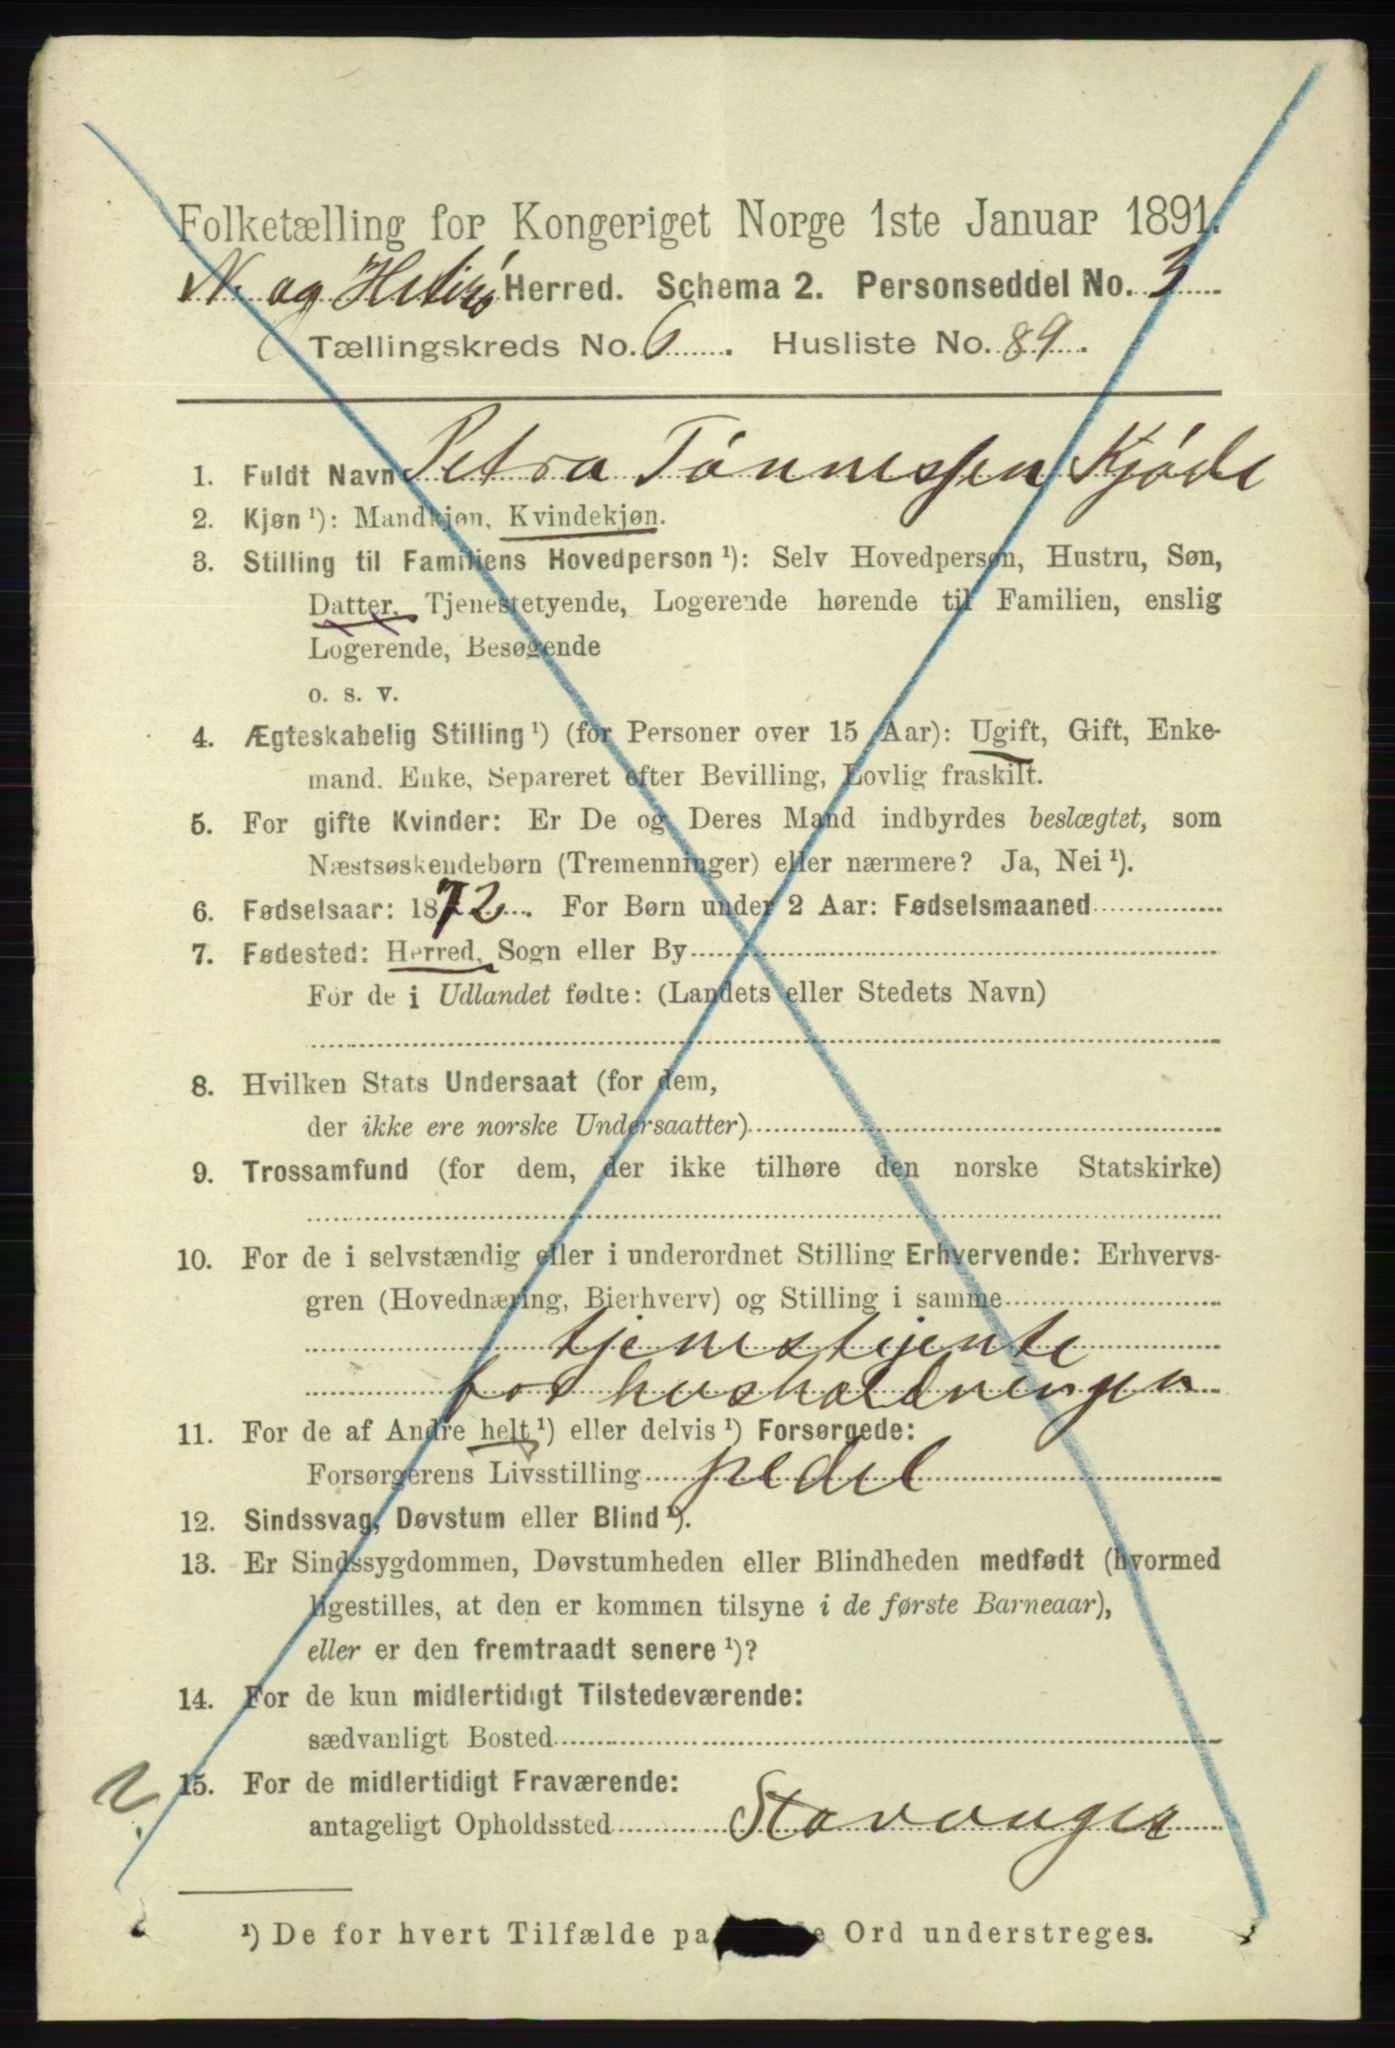 Folketælling for Kongeriget Norge 1ste Januar 1891.
N. og Hitterø Herred. Schema 2. Personseddel No. 3
Tællingskreds No. 6. Husliste No. 89.
1. Fuldt Navn Petra Tönnessen Kjöde
2. Kjøn ¹): Mandkjøn, Kvindekjøn.
3. Stilling til Familiens Hovedperson ¹): Selv Hovedperson, Hustru, Søn,
Datter, Tjenestetyende, Logerende hørende til Familien, enslig
Logerende, Besøgende
o. s. v.
4. Ægteskabelig Stilling ¹) (for Personer over 15 Aar): Ugift, Gift, Enke-
mand, Enke, Separeret efter Bevilling, Lovlig fraskilt.
5. For gifte Kvinder: Er De og Deres Mand indbyrdes beslægtet, som
Næstsøskendebørn (Tremenninger) eller nærmere? Ja, Nei ¹).
6. Fødselsaar: 1872. For Børn under 2 Aar: Fødselsmaaned
7. Fødested: Herred, Sogn eller By
For de i Udlandet fødte: (Landets eller Stedets Navn)
8. Hvilken Stats Undersaat (for dem,
der ikke ere norske Undersaatter)
9. Trossamfund (for dem, der ikke tilhøre den norske Statskirke)
10. For de i selvstændig eller i underordnet Stilling Erhvervende: Erhvervs-
gren (Hovednæring, Bierhverv) og Stilling i samme
tjenestijente
for husholdningen
11. For de af Andre helt ¹) eller delvis ¹) Forsørgede:
Forsørgerens Livsstilling pedel
12. Sindssvag, Døvstum eller Blind ¹).
13. Er Sindssygdommen, Døvstumheden eller Blindheden medfødt (hvormed
ligestilles, at den er kommen tilsyne i de første Barneaar),
eller er den fremtraadt senere ¹)?
14. For de kun midlertidigt Tilstedeværende:
sædvanligt Bosted
2. 15. For de midlertidigt Fraværende:
antageligt Opholdssted Stavanger
¹) De for hvert Tilfælde pa Ord understreges.